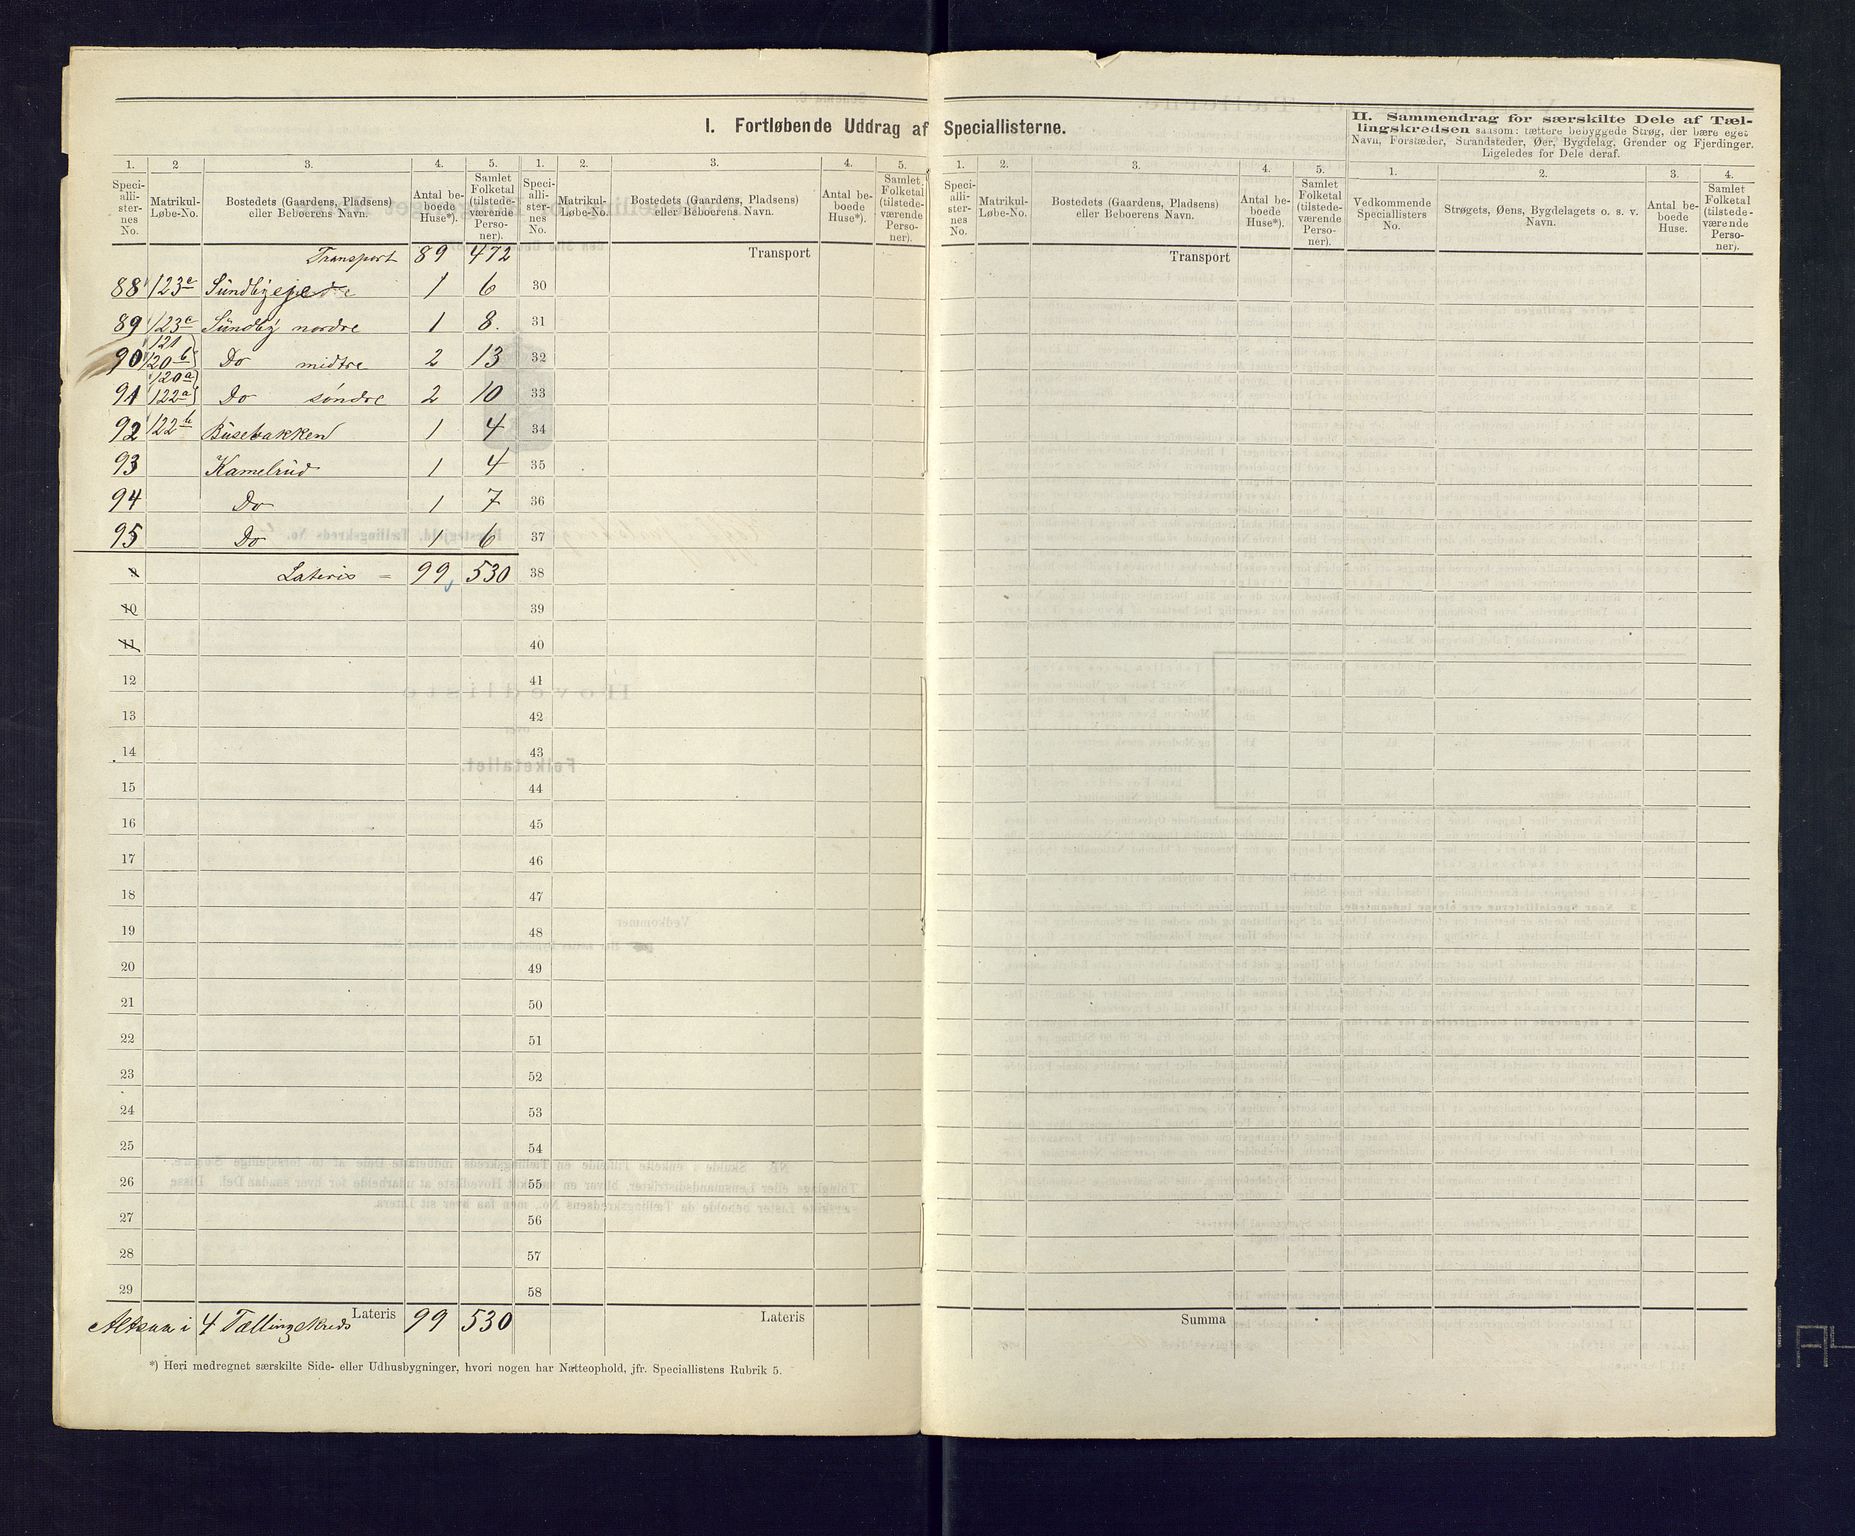 I. Fortløbende Uddrag af Speciallisterne.
II. Sammendrag for særskilte Dele af Tællingskredsen saasom: tættere bebyggede Strøg, der bære eget Navn, Forstæder, Strandsteder, Øer, Bygdelag, Grender og Fjerdinger. Ligeledes for Dele deraf.
1. 2 3. 4. 5. 1. 2. 3. 4. 5. 1. 2. 3. 4. 5. 1. 2. 3. 4.
Speciallisternes No. Matrikul-Løbe-No. Bostedets (Gaardens, Pladsens) eller Beboerens Navn. Antal beboede Huse*). Samlet Folketal (tilstedeværende Personer).
Speciallisternes No. Matrikul-Løbe-No. Bostedets (Gaardens, Pladsens) eller Beboerens Navn. Antal beboede Huse*). Samlet Folketal (tilstedeværende Personer).
Speciallisternes No. Matrikul-Løbe-No. Bostedets (Gaardens, Pladsens) eller Beboerens Navn. Antal beboede Huse*). Samlet Folketal (tilstedeværende Personer).
Vedkommende Speciallisters No. Strøgets, Øens, Bygdelagets o. s. v. Navn. Antal beboede Huse. Samlet Folketal (tilstedeværende Personer).
Transport 89 472 Transport Transport
88 123 1 6 30
89 123c Sündby nordre 1 8. 31
90 121 120b Do midtre 2 13 32
91 120a 122a Do søndre 2 10 33
92 122b Büsebakken 1 4 34
93 Kamelrüd 1 4 35
94 Do 1 7 36
95 Do 1 6 37
9 Lateris = 99 530 38
10 39
11 40
12 41
13 42
14 43
15 44
16 45
17 46
18 47
19 48
20 49
21 50
22 51
23 52
24 53
25 54
26 55
27 56
28 57
29 58
Altsaa i 4 Tællingskreds Lateris 99 530 Lateris Summa
*) Heri medregnet særskilte Side- eller Udhusbygninger, hvori nogen har Natteophold, jfr. Speciallistens Rubrik 5.